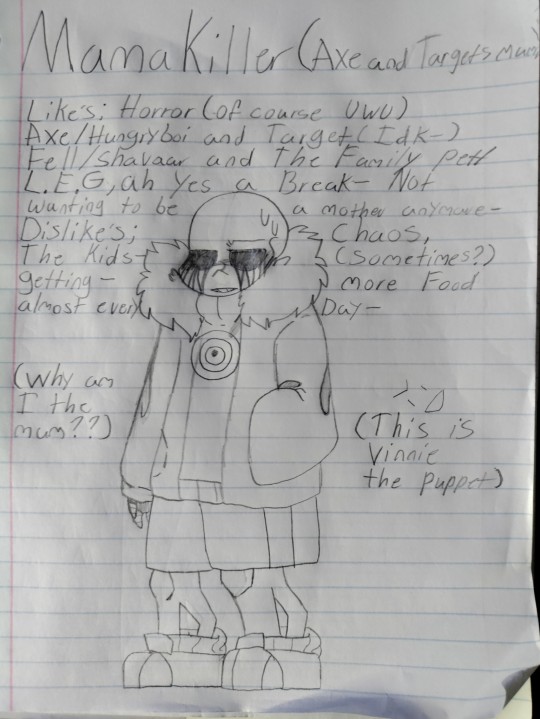 Mama Killer (Axe and Targets mum)
Like's; Horror (of course UWU)
Axe/Hungryboi and Target (Idk-)
Fell/Shavaar and The Family pet/
L.E.G, ah Yes a Break- Not
wanting to be a mother anymore-
Dislike's; Chaos,
The Kids (Sometimes?)
getting- more Food
almost every Day-
(Why am
I the
mum??)
(This is
Vinnie
the puppet)